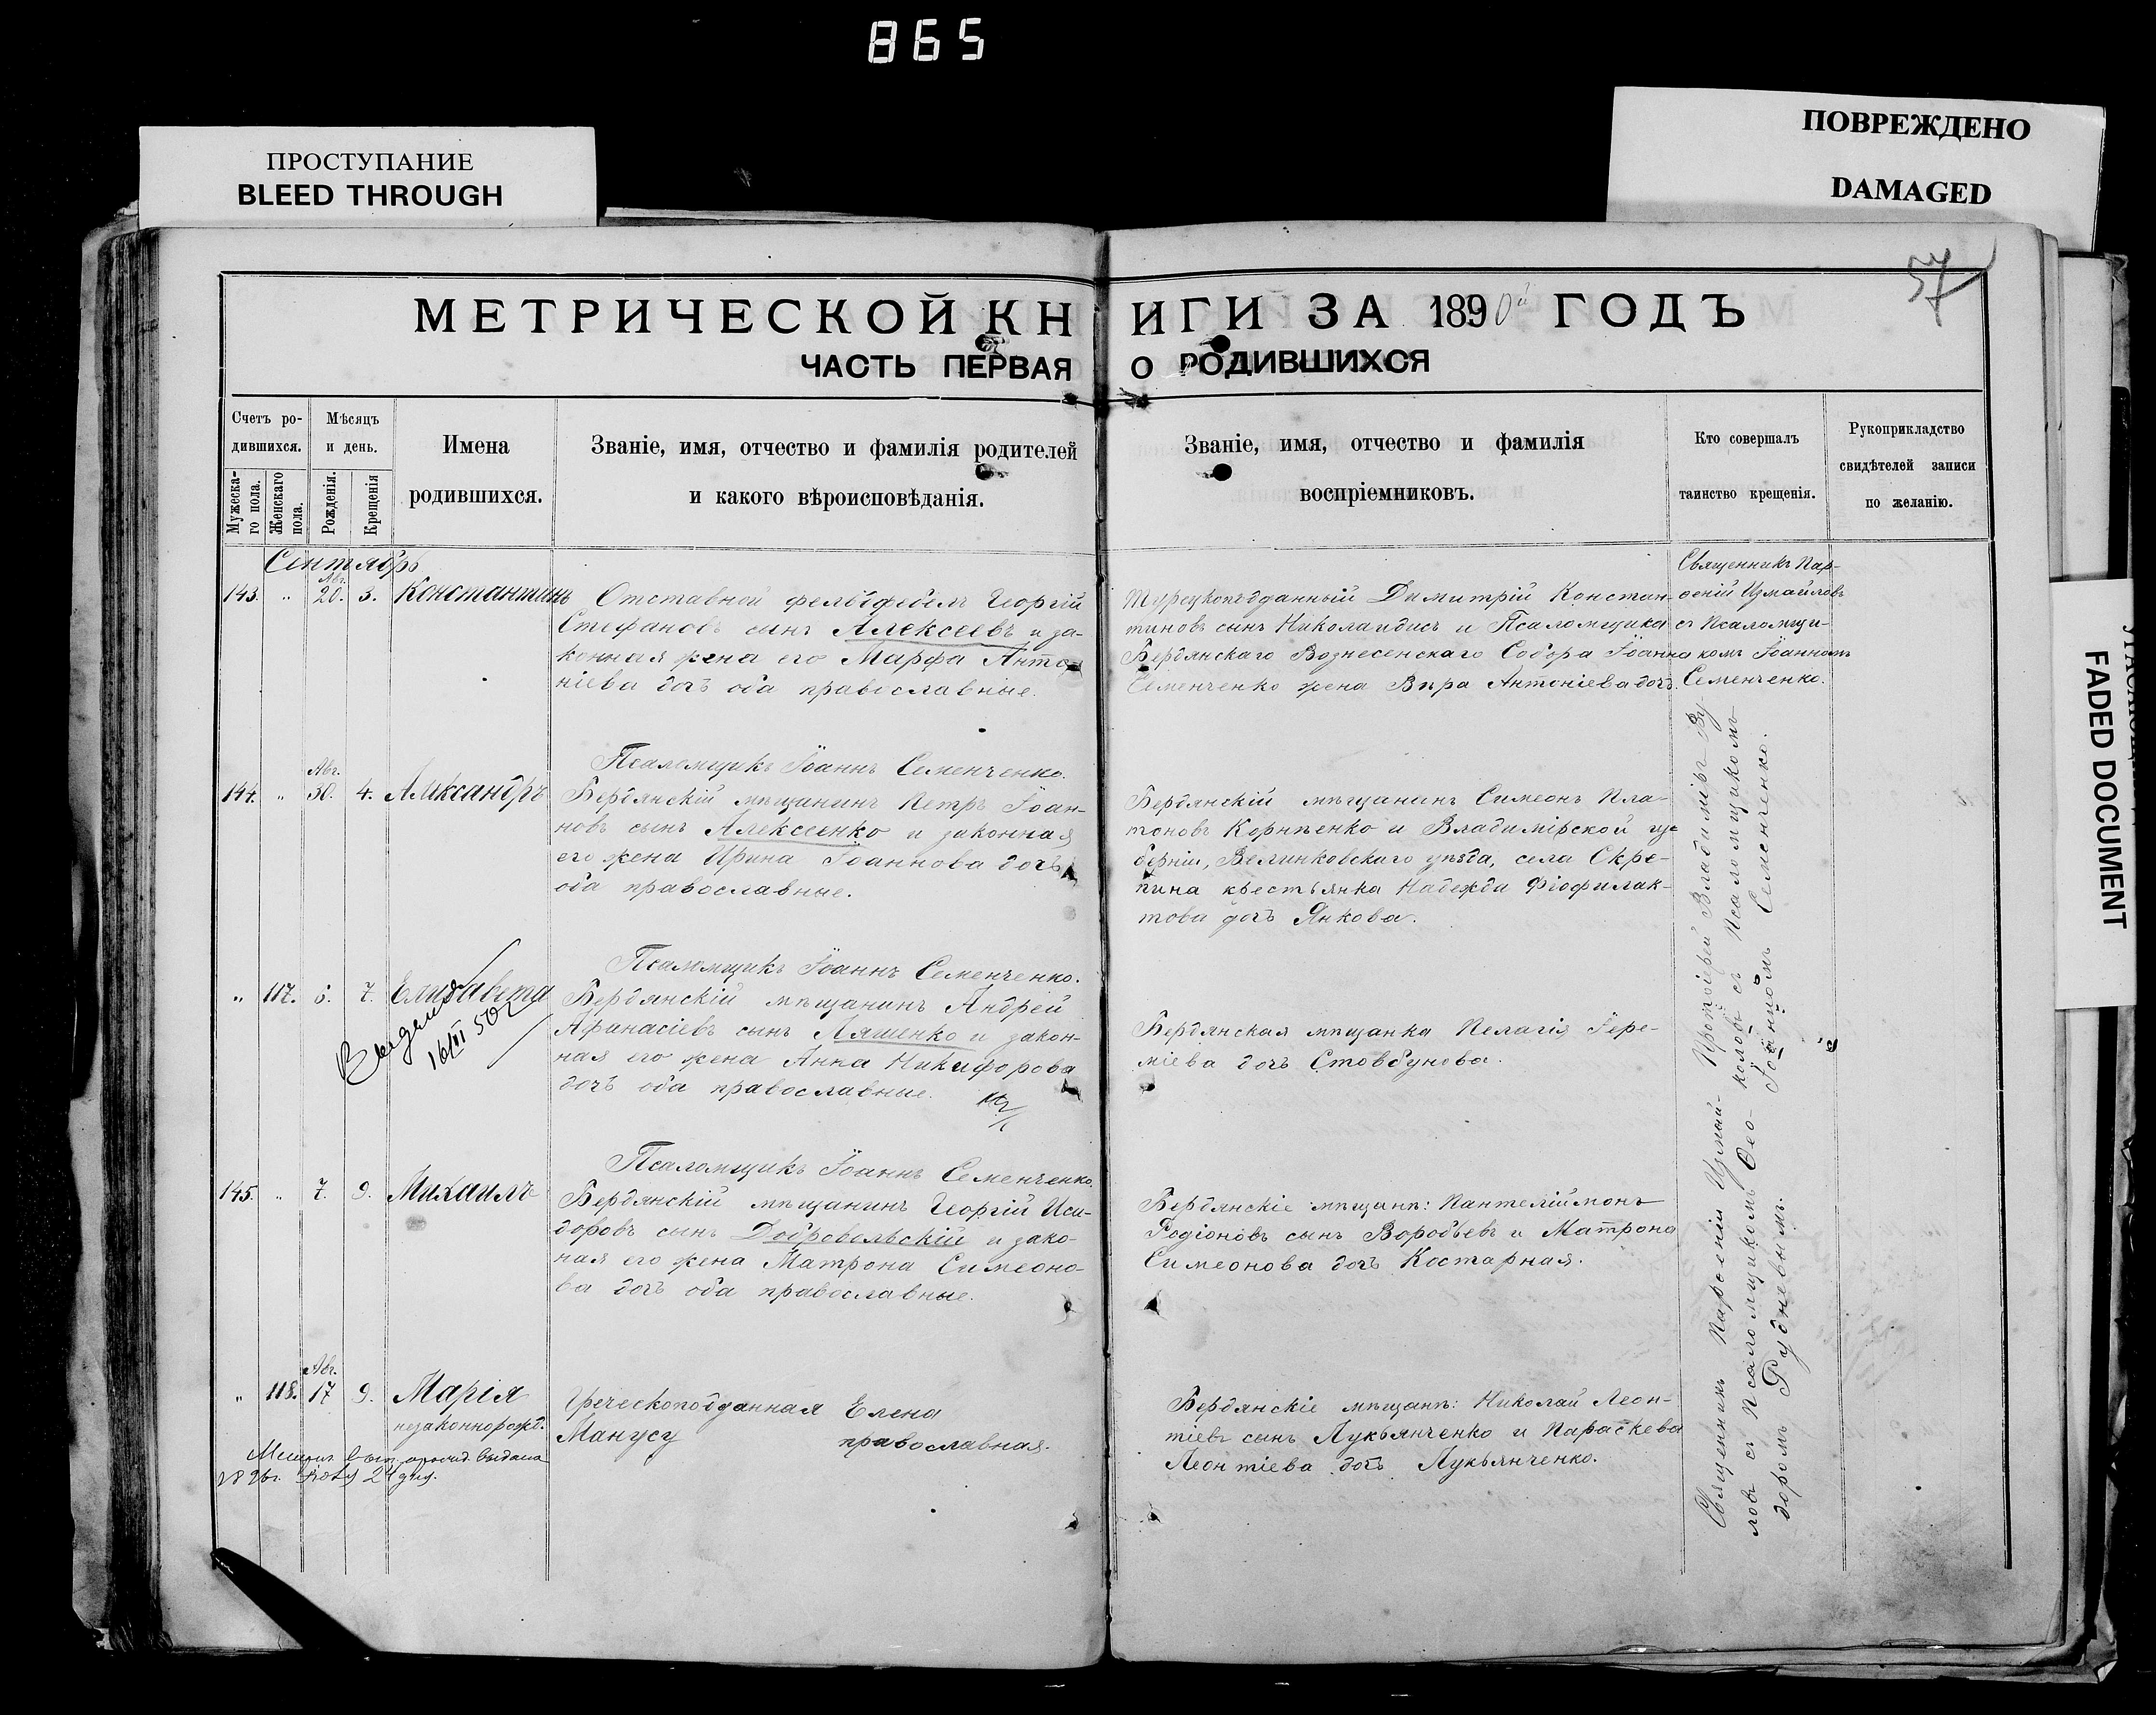 865
ПРОСТУПАНИЕ
BLEED THROUGH
ПОВРЕЖДЕНО
DAMAGED
FADED DOCUMENT
57
МЕТРИЧЕСКОЙ КНИГИ ЗА 1890й ГОДЪ
ЧАСТЬ ПЕРВАЯ О РОДИВШИХСЯ
Счетъ ро-
дившихся.
Мужеска-
го пола.
Женскаго
пола.
Мѣсяцъ
и день.
Рожденія.
Крещенія
Имена
родившихся.
Званіе, имя, отчество и фамилія родителей
и какого вѣроисповѣданія.
Званіе, имя, отчество и фамилія
воспріемниковъ.
Кто совершалъ
таинство крещенія.
Рукоприкладство
свидѣтелей записи
по желанію.
Сентябрь
143. " Авг. 20. 3. Константинъ
Отставной фельдфебель Георгій
Стефановъ сынъ Алексеевъ и за-
конная жена его Марфа Анто-
ніева дочь оба православные.
Турецкоподданный Димитрій Констан-
тиновъ сынъ Николаидисъ и Псаломщика
Бердянскаго Вознесенскаго Собора Іоанна
Семенченко жена Вѣра Антоніева дочь.
Священникъ Пар-
ѳеній Измайловъ
съ Псаломщи-
комъ Іоанномъ
Семенченко.
Псаломщикъ Іоаннъ Семенченко.
144. " Авг. 30. 4. Александръ
Бердянскій мѣщанинъ Петръ Іоан-
новъ сынъ Алексеенко и законная
его жена Ирина Іоаннова дочь
оба православные.
Бердянскій мѣщанинъ Симеонъ Пла-
тоновъ Корнѣенко и Владимірской гу-
берніи, Велинковскаго уѣзда, села Скре-
пина крестьянка Надежда Фіофилак-
това дочь Янкова.
Протоіерей Владиміръ Ву
коловъ съ Псаломщикомъ
Іоанномъ Семенченко.
Псаломщикъ Іоаннъ Семенченко.
" 117. 6. 7. Елизавета
16/III 50
Бердянскій мѣщанинъ Андрей
Афанасіевъ сынъ Ляшенко и закон-
ная его жена Анна Никифорова
дочь оба православные.
Бердянская мѣщанка Пелагія Іере-
міева дочь Стовбунова.
Псаломщикъ Іоаннъ Семенченко.
145. " 7. 9. Михаилъ
Бердянскій мѣщанинъ Георгій Иси-
доровъ сынъ Добровольскій и зако-
ная его жена Матрона Симеоно-
ва дочь оба православные.
Бердянскіе мѣщане: Пантелійmонъ
Родіоновъ сынъ Воробьевъ и Матрона
Симеонова дочь Костарная.
Священникъ Парѳеній Измай-
ловъ съ Псаломщикомъ Ѳео-
доромъ Рудневымъ.
" 118. Авг. 17 9. Марія
незаконнорожд.
Греческоподданная Елена
Манусу православная.
Бердянскіе мѣщане: Николай Леон-
тіевъ сынъ Лукьянченко и Параскева
Леонтіева дочь Лукьянченко.